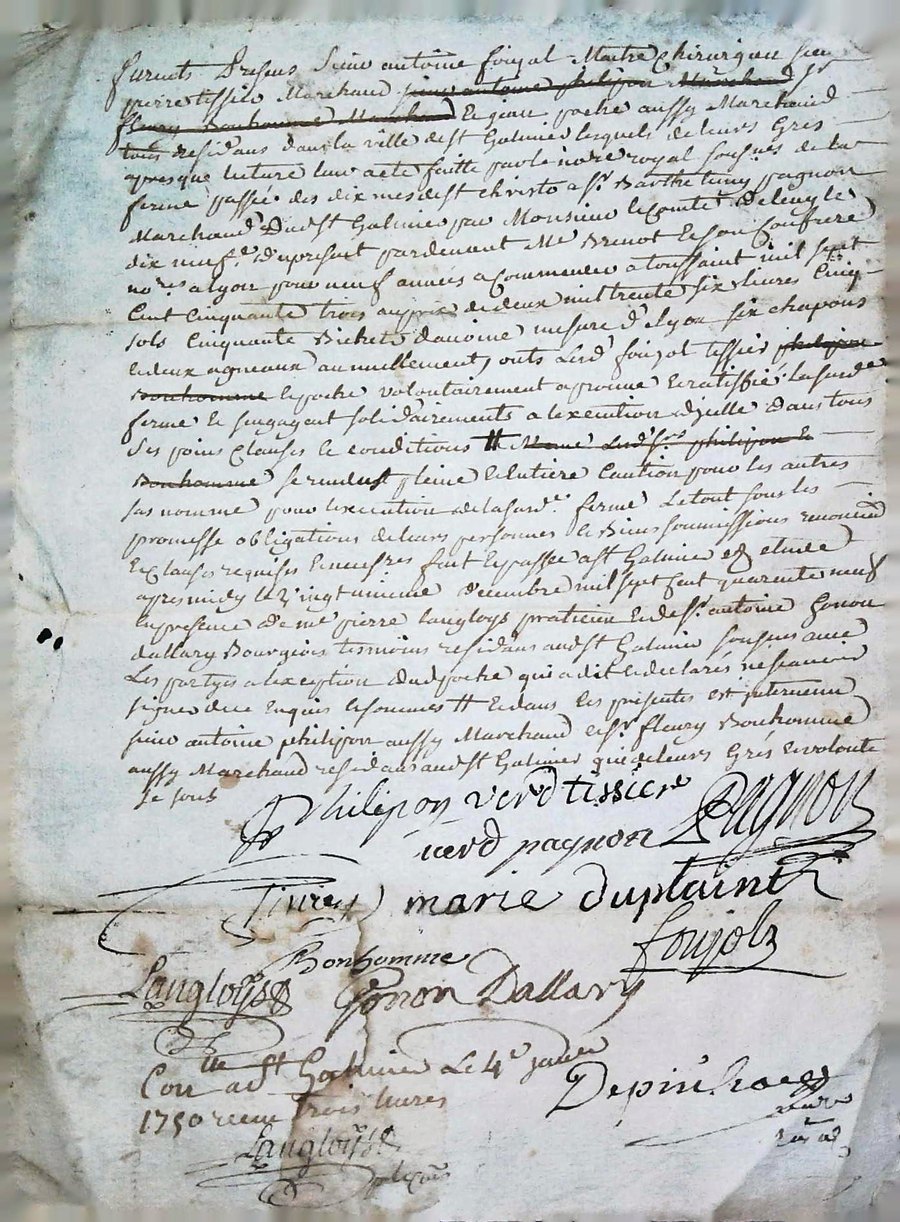 furents presens sieur antoine foujol Maitre Chirurgien sieur
pierre tissier Marchand sieur antoine philipon Marchand Sr
fleury Bonhomme Marchand Et jean poche aussy Marchand
tous residans dans la ville de st Galmier lesquels de leurs Gres
apres que lecture leur a ete faitte par le nore royal sousné de la
ferme passée des dixmes de st Christo a sr. Barthelemy pagnon
Marchand dudt st Galmier par Monsieur le Comte De
dix neufe. du present pardevant Me Brenot Et son Confrere
nores a lyon pour neuf années a Commencer a toussaint mil sept
Cent Cinquante trois au prix de deux mil trente six livres Cinq
sols Cinquante Bichets d'avoine mesure de lyon six chapons
Et deux agneaux annuellement, onts Lesd. foujol tissier philipon
Bonhomme Et poche volontairement aprouvé Et ratiffié La susde.
ferme Et s'engagent solidairements a l'execution d'jcelle dans tous
ses poins Clauses Et conditions # Meme Lesd. srs philipon Et
Bonhomme se rendust pleine Et entiere Caution pour les autres
sus nommé pour l'execution de la susde. ferme Le tout sous les
promesse obligations de leurs personnes Et Biens soumissions renonciõn
Et Clauses requises Et necesres fait Et passé a st Galmier Etude
apres midy le vingt unieme decembre mil sept Cent quarente neuf
En presence de me pierre Langloys praticien Et de sr. antoine Gonon
dallary Bourgeois tesmoins residans audt st Galmier sousnés avec
Les partyes a l'exeption dudt poche qui a dit Et declaré ne scavoir
signer de ce Enquis Et sommes # Et dans les presentes est jntervenu
sieur antoine philipon aussy Marchand Et sr. fleury Bonhomme
aussy Marchand residans audt st Galmier qui de leurs Grés Et volonte
se sous
Philipon verd tissier
verd pagnon Pagnon
marie duplaint
foujols
Bonhomme
Langloys Gonon Dallary
Con a st Galmier Le 4e janer
1750 receu trois livres
Langloys